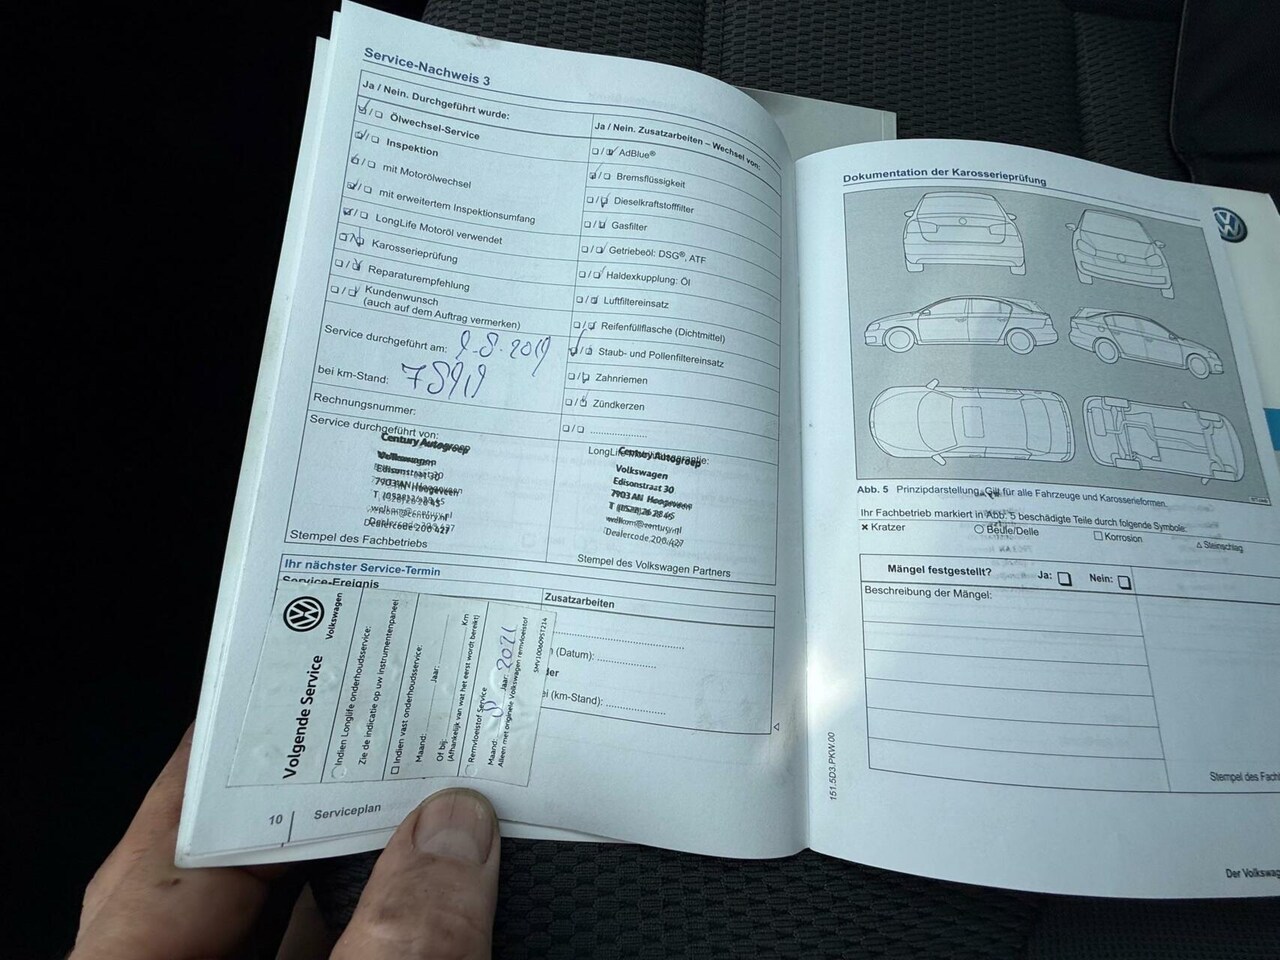 Service-Nachweis 3
Ja / Nein. Durchgeführt wurde:
Ölwechsel-Service
Inspektion
mit Motorölwechsel
mit erweitertem Inspektionsumfang
LongLife Motoröl verwendet
Karosserieprüfung
Reparaturempfehlung
Kundenwunsch
(auch auf dem Auftrag vermerken)
Service durchgeführt am: 9-8-2019
bei km-Stand: 75919
Rechnungsnummer:
Service durchgeführt von:
Century Autogroep
Volkswagen
Edisonstraat 30
7903 AN Hoogeveen
Dealercode 200 427
Stempel des Fachbetriebs
Ja / Nein. Zusatzarbeiten – Wechsel von:
AdBlue®
Bremsflüssigkeit
Dieselkraftstofffilter
Gasfilter
Getriebeöl: DSG®, ATF
Haldexkupplung: Öl
Luftfiltereinsatz
Reifenfüllflasche (Dichtmittel)
Staub- und Pollenfiltereinsatz
Zahnriemen
Zündkerzen
Century Autogroep
Volkswagen
Edisonstraat 30
7903 AN Hoogeveen
welkom@century.nl
Dealercode 200 427
Stempel des Volkswagen Partners
Ihr nächster Service-Termin
Service-Ereignis
Zusatzarbeiten
(Datum):
(km-Stand):
Volkswagen
Volgende Service
Indien Longlife onderhoudsservice:
Zie de indicatie op uw instrumentenpaneel
Indien vast onderhoudsservice:
Maand: Jaar:
Of bij: Km
(Afhankelijk van wat het eerst wordt bereikt)
Remvloeistof Service
Maand: 8 Jaar: 2021
Alleen met originele Volkswagen remvloeistof
10 Serviceplan
Dokumentation der Karosserieprüfung
Abb. 5 Prinzipdarstellung. Gilt für alle Fahrzeuge und Karosserieformen.
Ihr Fachbetrieb markiert in Abb. 5 beschädigte Teile durch folgende Symbole:
× Kratzer ○ Beule/Delle □ Korrosion △ Steinschlag
Mängel festgestellt? Ja: Nein:
Beschreibung der Mängel:
151.5D3.PKW.00
Stempel des Fach
Der Volkswag